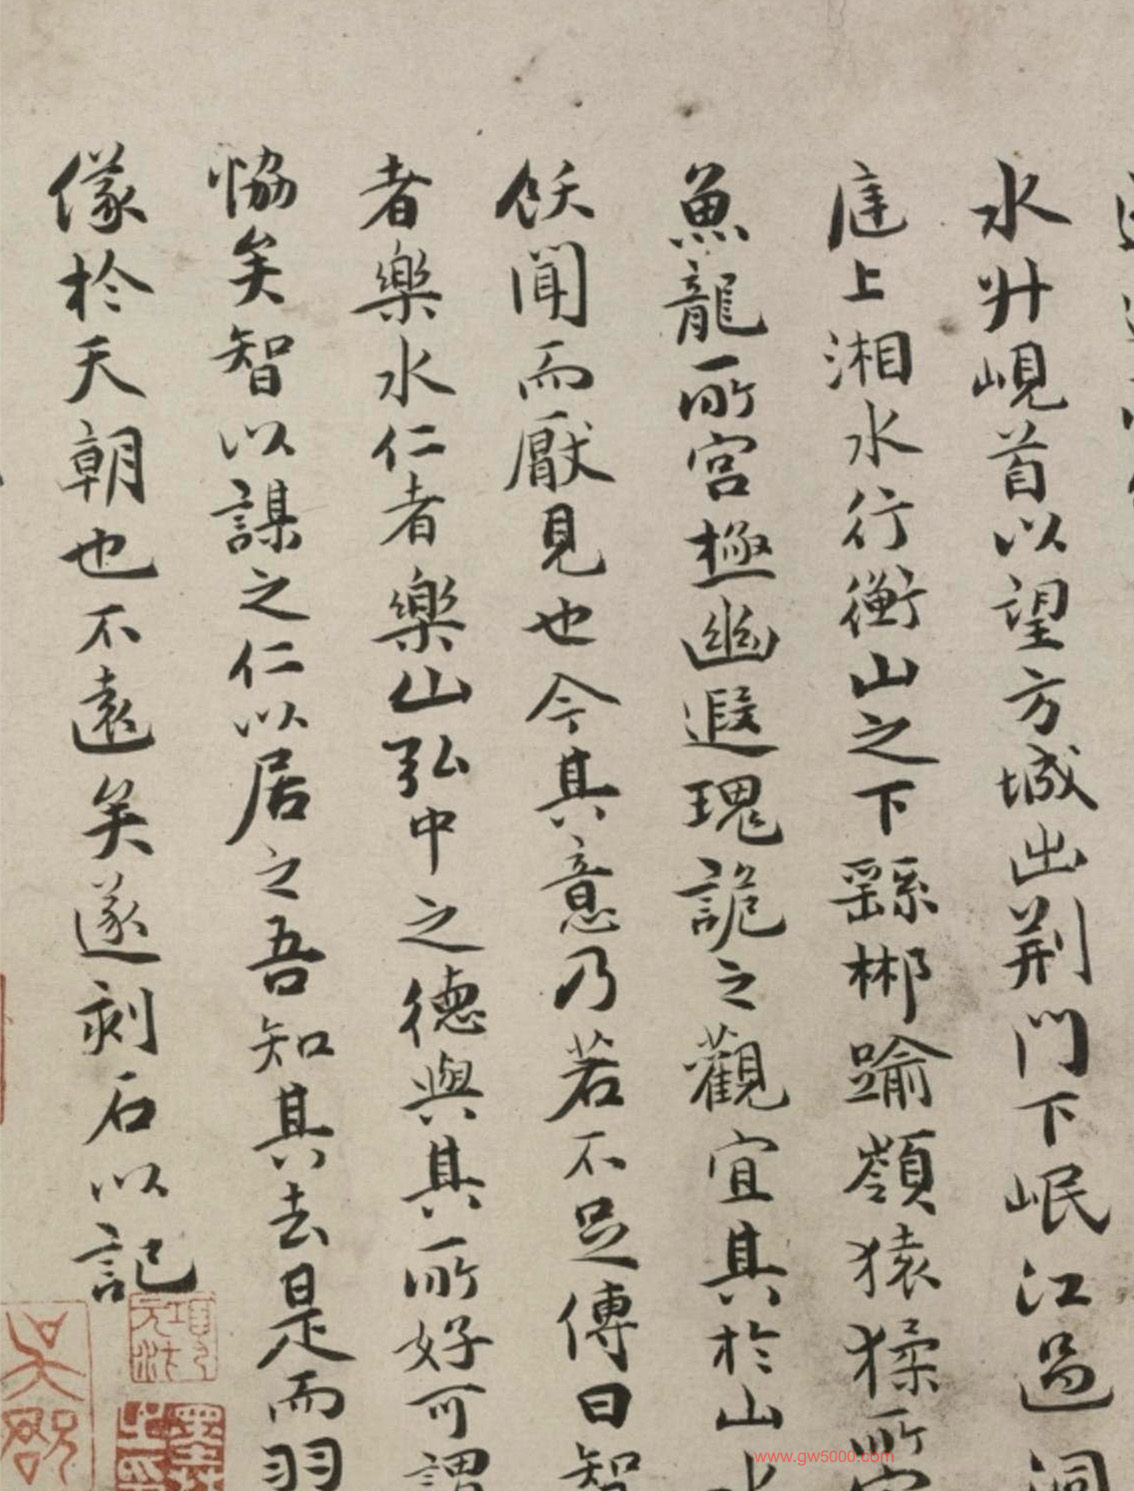 水升峴首以望方城出荊門下岷江過洞
庭上湘水行衡山之下繇郴踰嶺猿猱所
魚龍所宮極幽遐瑰詭之觀宜其於山水
飫聞而厭見也今其意乃若不足傳曰智
者樂水仁者樂山弘中之德與其所好可謂
恊矣智以謀之仁以居之吾知其去是而羽
儀於天朝也不遠矣遂刻石以記
www.gw5000.com